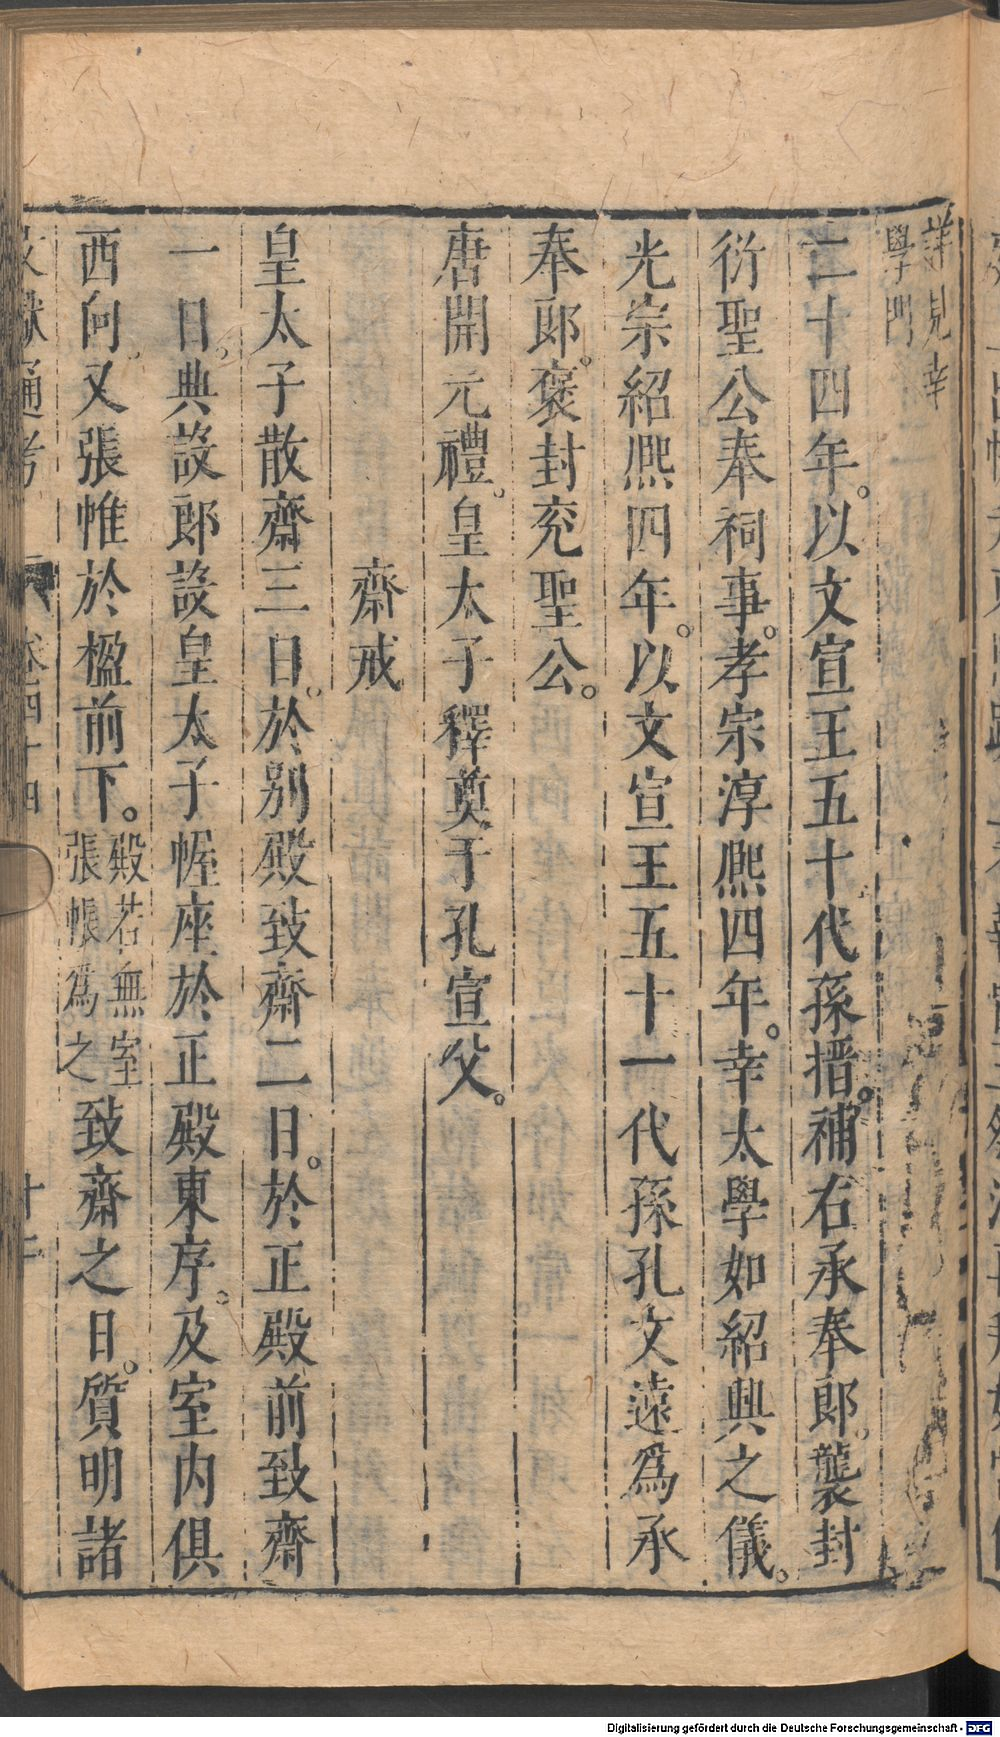 詳見幸
學門
二十四年。以文宣王五十代孫搢。補右承奉郎。襲封
衍聖公奉祠事。孝宗淳熙四年。幸太學如紹興之儀。
光宗紹熙四年。以文宣王五十一代孫孔文遠爲承
奉郎。褒封充聖公。
唐開元禮。皇太子釋奠于孔宣父。
齋戒
皇太子散齋三日。於別殿致齋二日。於正殿前致齋
一日。典設郎設皇太子幄座於正殿東序。及室内俱
西向。又張帷於楹前下。
殿若無室
張帳爲之
致齋之日。質明諸
文獻通考 卷四十四
Digitalisierung gefördert durch die Deutsche Forschungsgemeinschaft - DFG